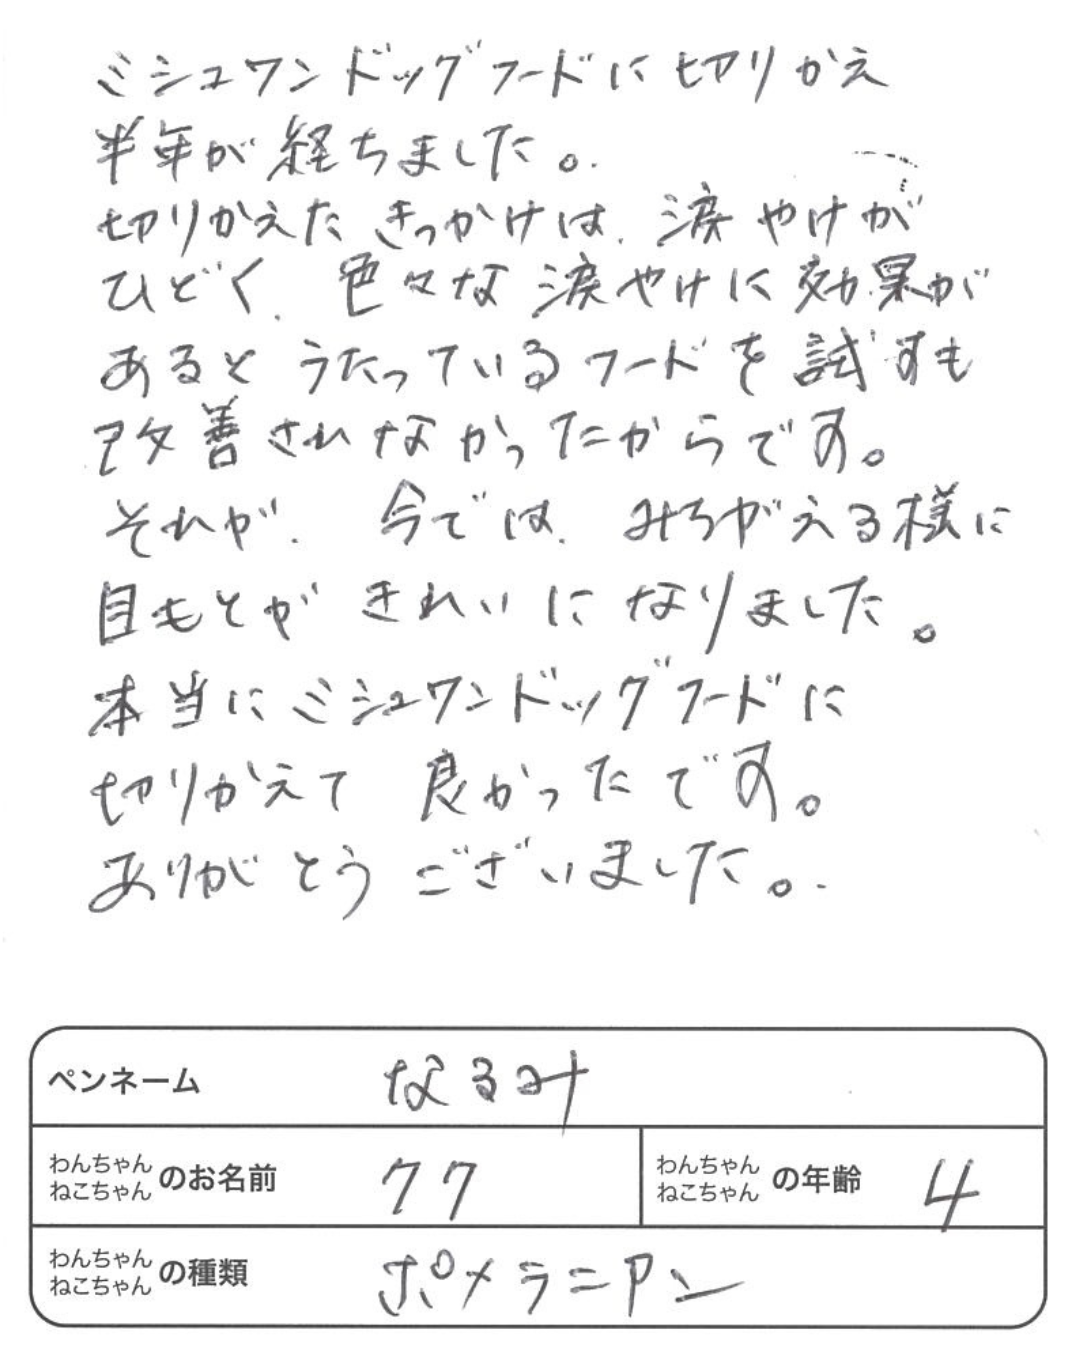 ミシュワンドッグフードに切りかえ
半年が経ちました。
切りかえたきっかけは、涙やけが
ひどく、色々な涙やけに効果が
あるとうたっているフードを試すも
改善されなかったからです。
それが、今では、みちがえる様に
目もとがきれいになりました。
本当にミシュワンドッグフードに
切りかえて良かったです。
ありがとうございました。
ペンネーム なるみ
わんちゃん ねこちゃん のお名前 クク わんちゃん ねこちゃん の年齢 4
わんちゃん ねこちゃん の種類 ポメラニアン